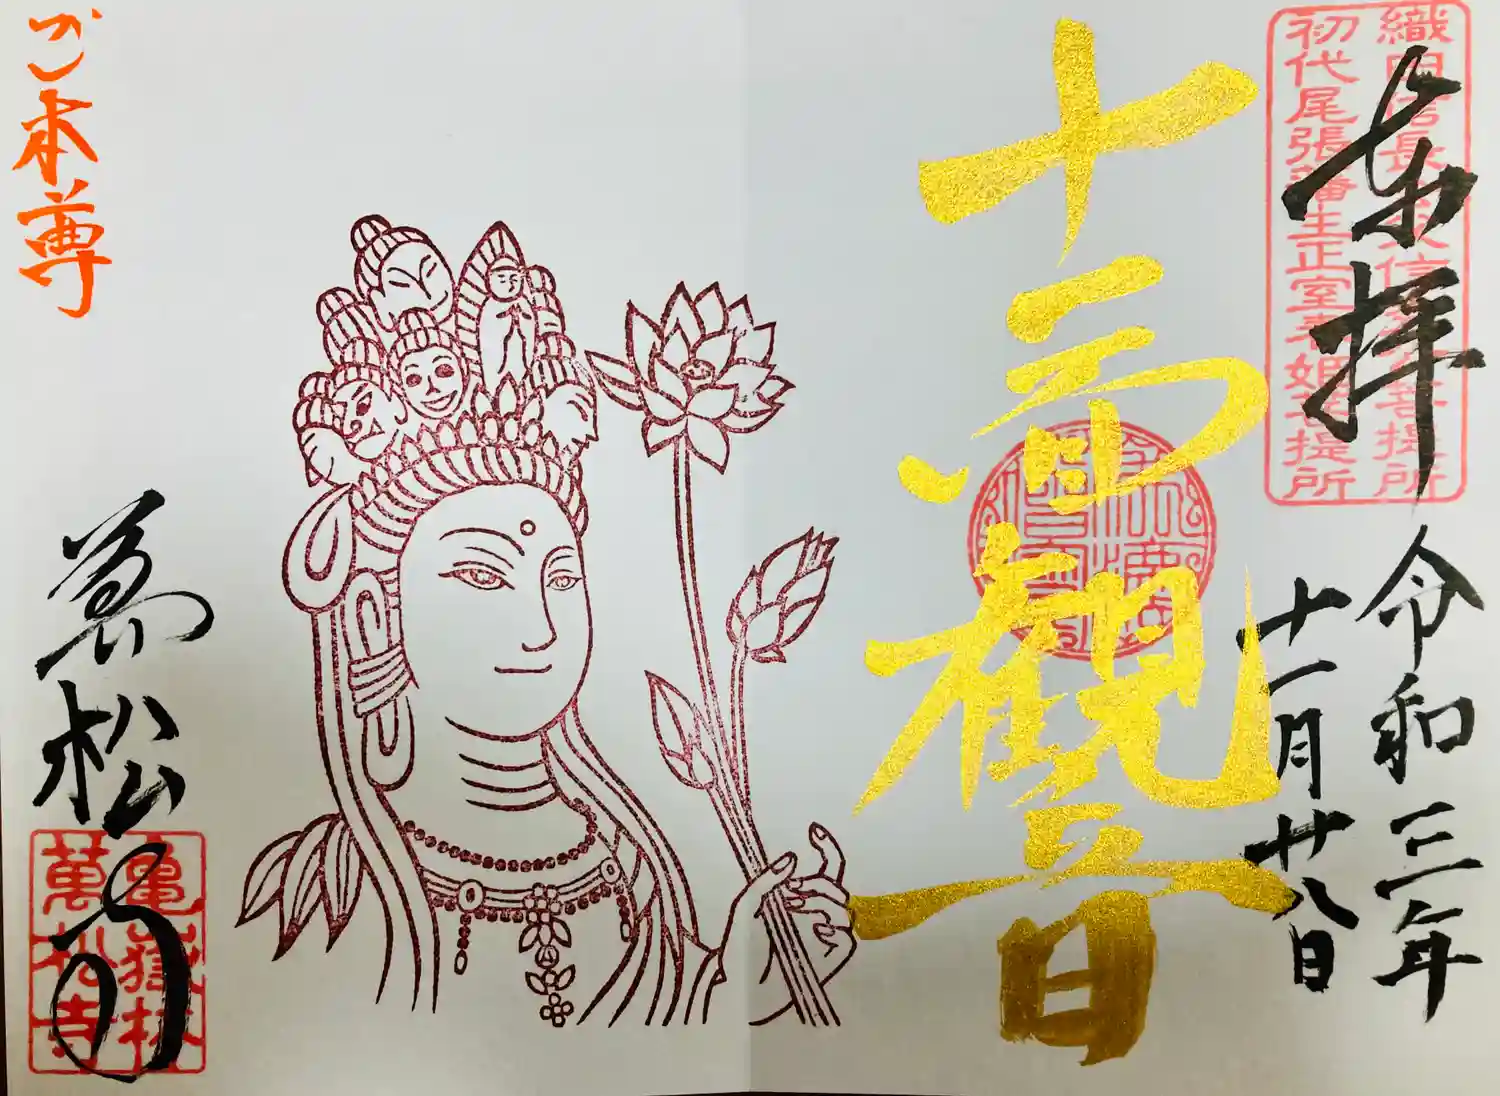 織田信長公父信秀公菩提所
初代尾張藩主正室春姫菩提所
奉拝
令和三年
十一月廿八日
十一面觀音
ご本尊
萬松寺
亀嶽林
萬松寺